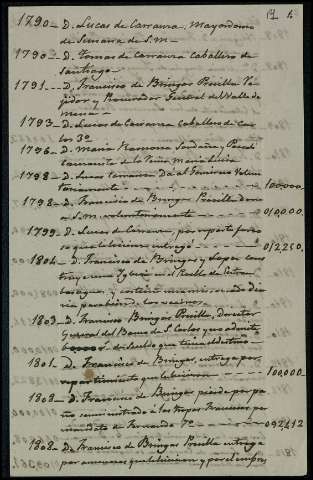 1790 - D. Lucas de Carranza, Mayordomo
de Semana de S.M. -
1790 - D. Tomas de Carranza Caballero de
Santiago -
1791 - D. Francisco de Bringas Presilla Re-
gidor y Procurador General del Valle de
Mena -
1793 - D. Lucas de Carranza Caballero de Car-
los 3º
1796 - D. Maria Ramona
Camarista de la Reina Maria Luisa
1798 - D. Lucas Carranza Da al Tesorero Volun-
tariamente - 100,000.
1798 - D. Francisco de Bringas Presilla dona
a S.M. voluntariamente - 010,000.
1799 - D. Lucas de Carranza, por
que le hicieron entregó - 012,250.
1804 - D. Francisco de Bringas y Lopez cons-
truye una Iglesia en el Pueblo de Entram-
basaguas, y costea una misa dia-
ria para bien de los vecinos.
1803 - D. Francisco Bringas Presilla, director
General del Banco de S. Carlos y no admite
el sueldo que tenia el destino -
1801 - D. Francisco de Bringas, entrega por
repartimiento que le hicieron - 100,000
1808 - D. Francisco de Bringas pierde por pa-
ños suministrados a las tropas Francesas por
mandato de Fernando 7º - 092,412
1808 - D. Francisco de Bringas Presilla entrega
por que le hicieron y por el empre-